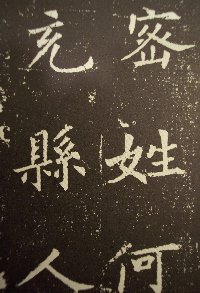 密姓何
充縣人